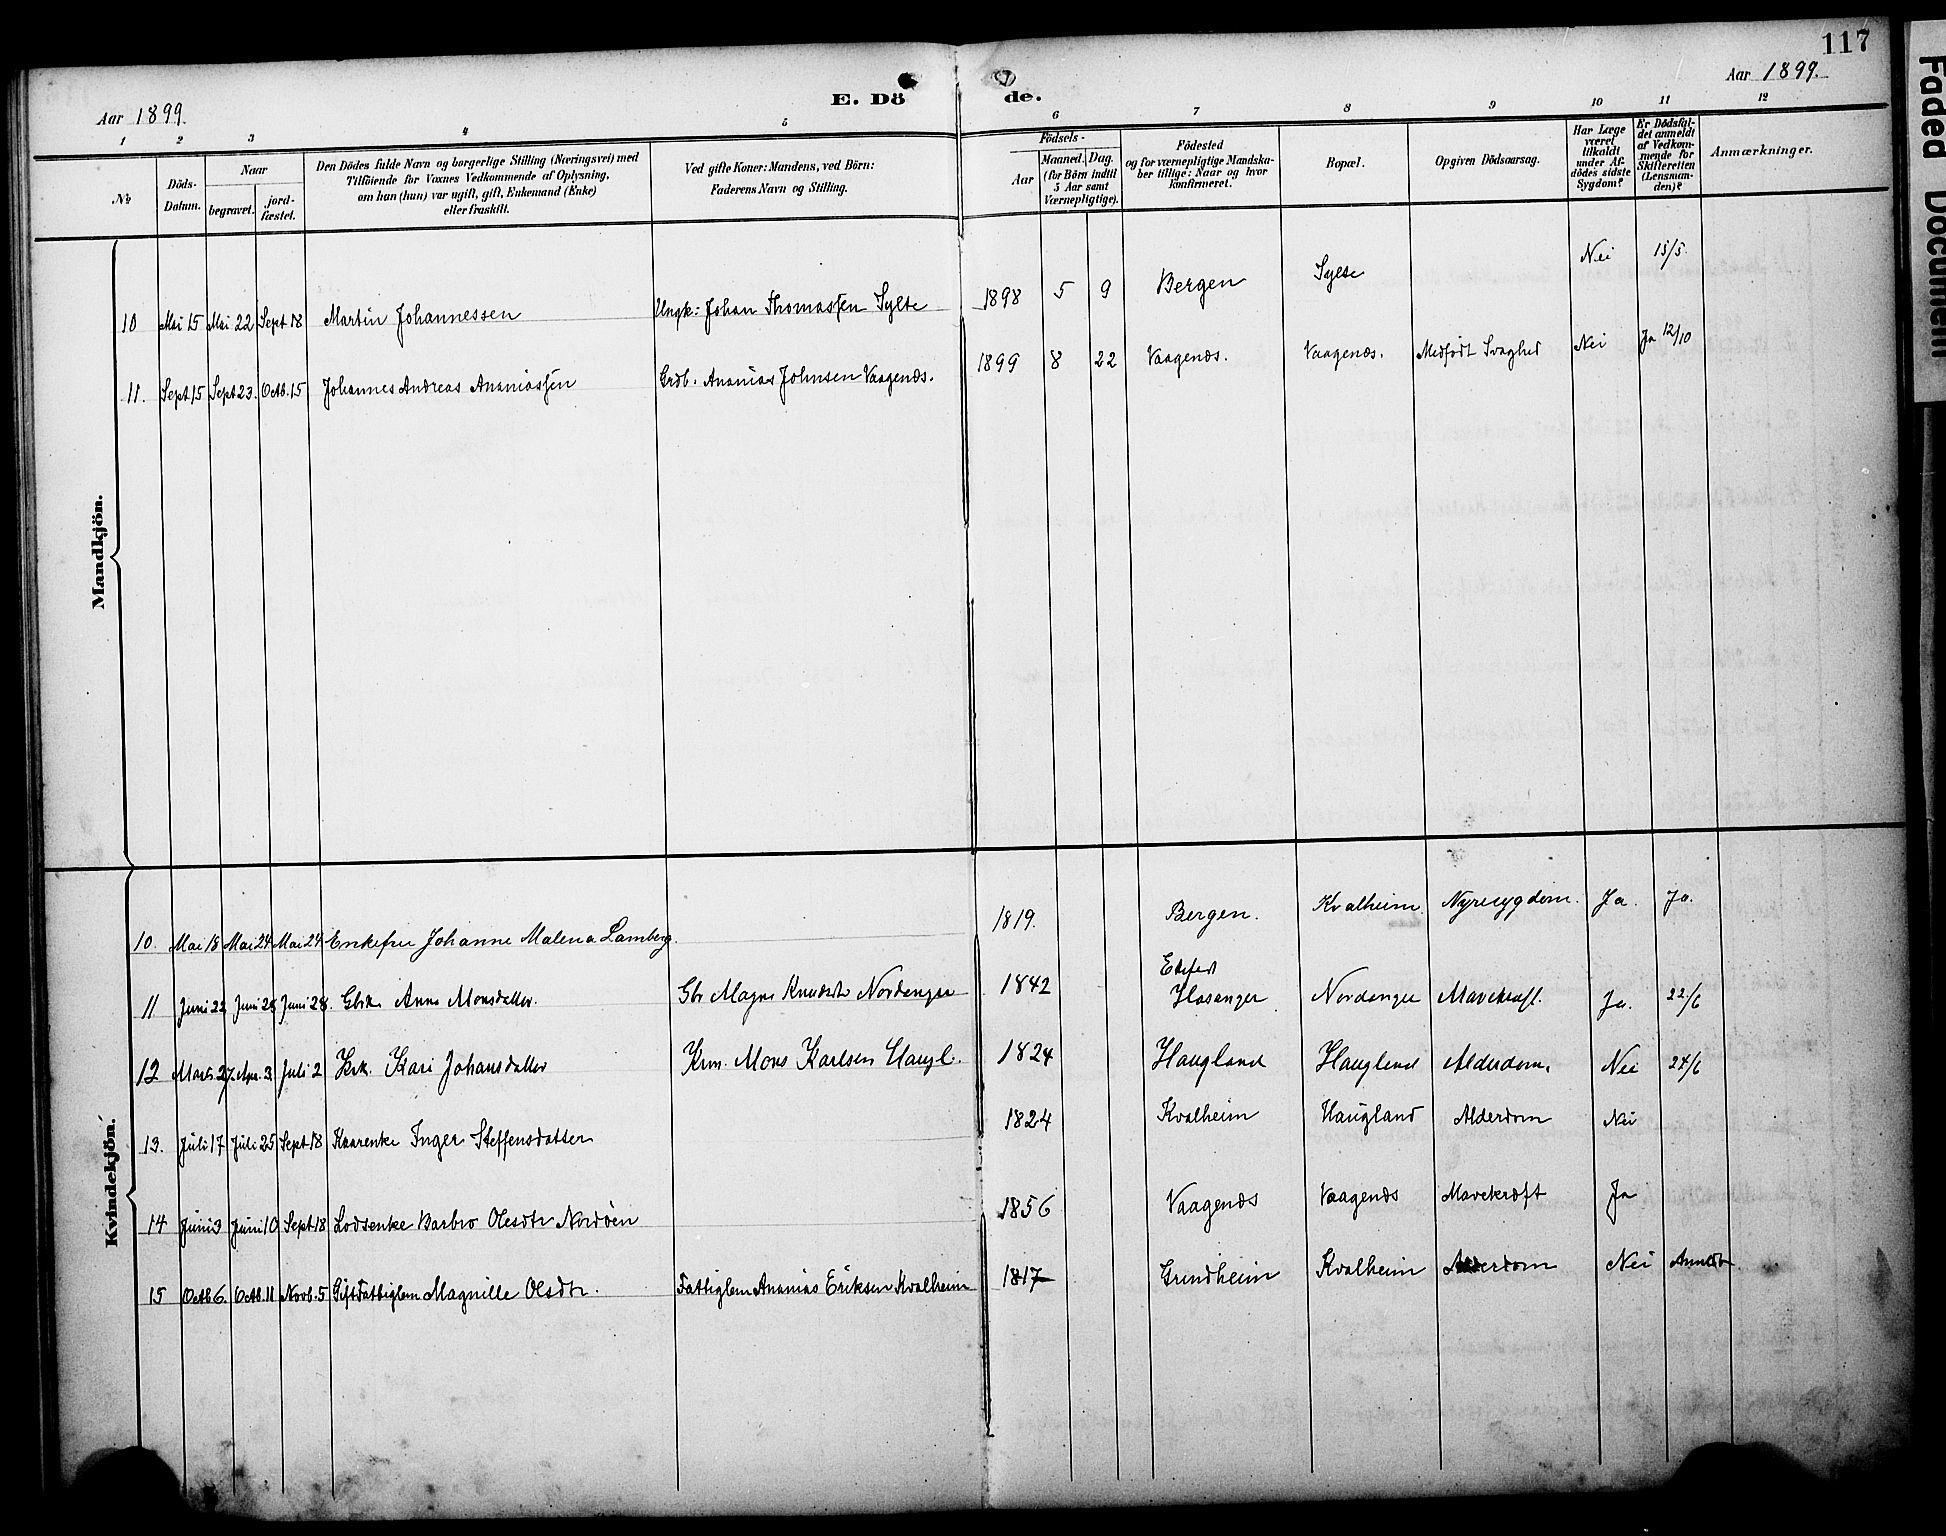 117
Aar 1899.
E. Dö de.
Aar 1899.
1 2 3 4 5 6 7 8 9 10 11 12
№
Döds-Datum.
Naar
begravet.
jord-fæstet.
Den Dödes fulde Navn og borgerlige Stilling (Næringsvei) med
Tilföiende for Voxnes Vedkommende af Oplysning,
om han (hun) var ugift, gift, Enkemand (Enke)
eller fraskilt.
Ved gifte Koner: Mandens, ved Börn:
Faderens Navn og Stilling.
Födsels-
Aar
Maaned. Dag.
(for Börn indtil
5 Aar samt
Værnepligtige).
Födested
og for værnepligtige Mandska-
ber tillige: Naar og hvor
konfirmeret.
Bopæl.
Opgiven Dödsaarsag.
Har Læge
været
tilkaldt
under Af-
dödes sidste
Sygdom?
Er Dödsfal-
det anmeldt
af Vedkom-
mende for
Skifteretten
(Lensman-
den)?
Anmærkninger.
Mandkjön.
10 Mai 15 Mai 22 Sept 18 Martin Johannessen Ungk: Johan Thomassen Sylte 1898 5 9 Bergen Sylte Nei 15/5.
11. Sept 15 Sept 23. Octb. 15 Johannes Andreas Ananiassen Grdb. Ananias Johnsen Vaagenæs. 1899 8 22 Vaagenæs. Vaagenæs. Medfödt Svaghed Nei Ja 12/10
Kvindekjön.
10. Mai 18 Mai 24 Mai 24 Enkefru Johanne Malena Lamberg. 1819. Bergen. Kvalheim. Nyresygdom. Ja. Ja.
11 Juni 22 Juni 28 Juni 28. Gbrk. Anna Monsdatter. Gbr Magne Knudsen Nordanger 1842 Hosanger Nordanger Mavekræft. Ja. 22/6
12 Marts. 27. Apr. 3 Juli 2 Krk. Kari Johansdatter Krm. Mons Karlsen Haugl. 1824 Haugland Haugland Alderdom. Nei 24/6
13. Juli 17 Juli 25 Sept 18 Kaarenke Inger Steffensdatter 1824 Kvalheim Haugland Alderdom Nei
14 Juni 3 Juni 10 Sept 18 Lodsenke Barbro Olesdtr Nordöen 1856 Vaagenæs Vaagenæs Mavekræft Ja
15 Octb 6. Octb. 11 Novb. 5 Gift Fattiglem Magnille Olsdtr. Fattiglem Ananias Eriksen Kvalheim 1817 Grindheim Kvalheim Alderdom Nei Anmeldt
Faded Document